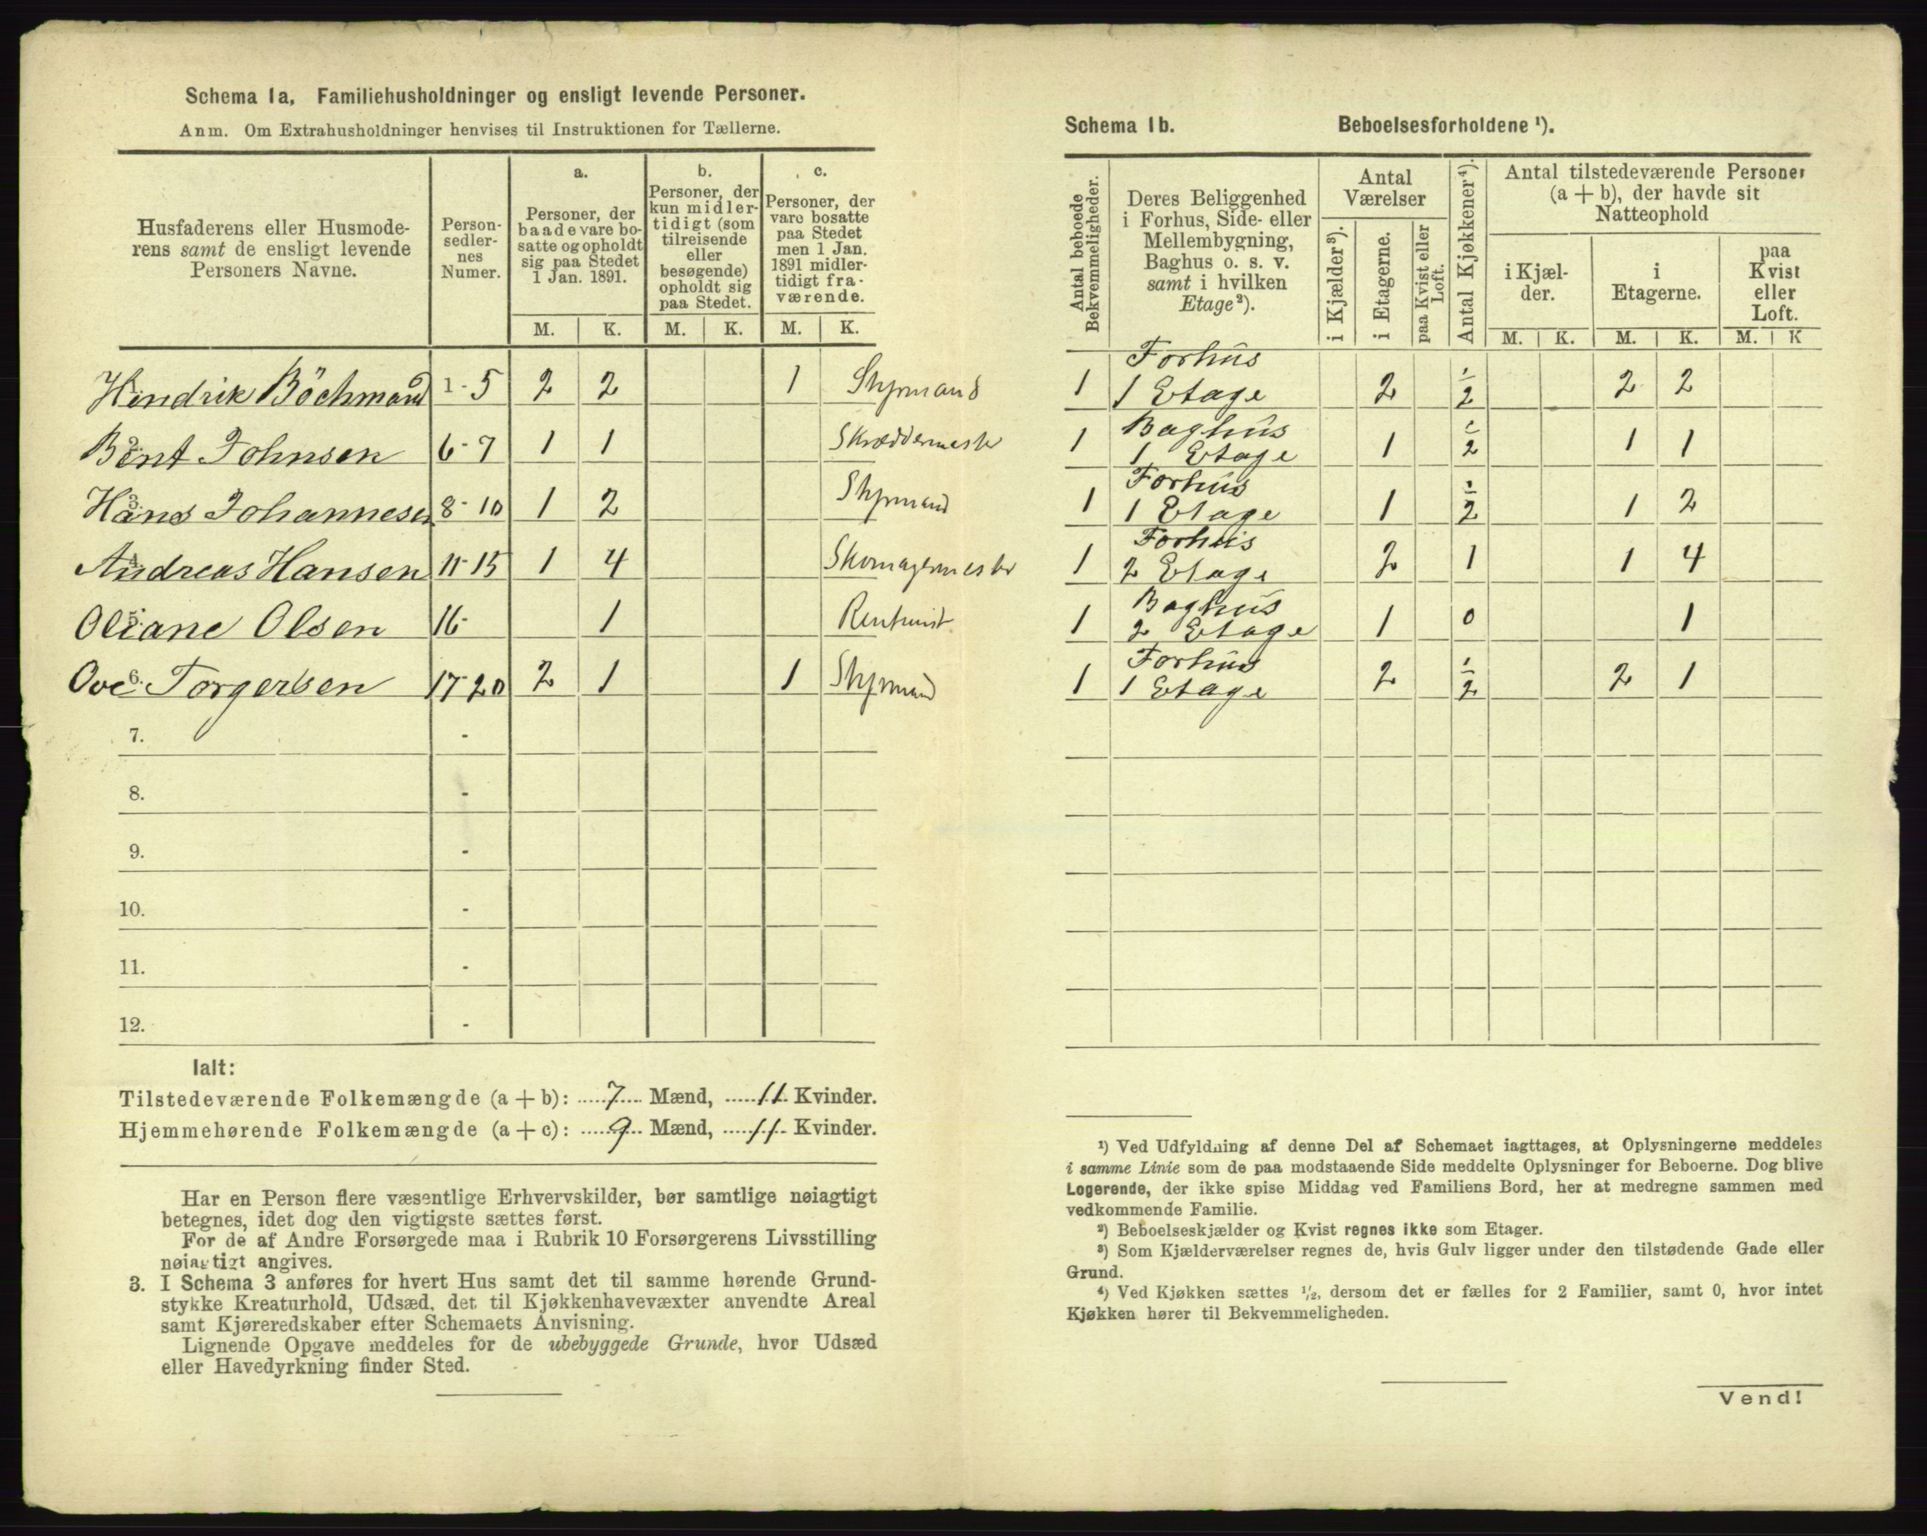 Schema 1a. Familiehusholdninger og ensligt levende Personer.
Anm. Om Extrahusholdninger henvises til Instruktionen for Tællerne.
Husfaderens eller Husmode-
rens samt de ensligt levende
Personers Navne.
Person-
sedler-
nes
Numer.
a.
Personer, der
baade vare bo-
satte og opholdt
sig paa Stedet
1 Jan. 1891.
b.
Personer, der
kun midler-
tidigt (som
tilreisende
eller
besøgende)
opholdt sig
paa Stedet.
c.
Personer, der
vare bosatte
paa Stedet
men 1 Jan.
1891 midler-
tidigt fra-
værende.
M. K. M. K. M. K.
Hendrik Böchmand 1-5 2 2 1 Styrmand
2. Bent Johnsen 6-7 1 1 Skræddermester
3. Hans Johannesen 8-10 1 2 Styrmand
4. Andreas Hansen 11-15 1 4 Skomagermester
5. Oliane Olsen 16- 1
6. Ove Torgersen 17-20 2 1 1 Styrmand
7. -
8. -
9. -
10. -
11. -
12. -
Ialt:
Tilstedeværende Folkemængde (a + b): 7 Mænd, 11 Kvinder.
Hjemmehørende Folkemængde (a + c): 9 Mænd, 11 Kvinder.
Har en Person flere væsentlige Erhvervskilder, bør samtlige nøiagtigt
betegnes, idet dog den vigtigste sættes først.
For de af Andre Forsørgede maa i Rubrik 10 Forsørgerens Livsstilling
nøiagtigt angives.
3. I Schema 3 anføres for hvert Hus samt det til samme hørende Grund-
stykke Kreaturhold, Udsæd, det til Kjøkkenhavevæxter anvendte Areal
samt Kjøreredskaber efter Schemaets Anvisning.
Lignende Opgave meddeles for de ubebyggede Grunde, hvor Udsæd
eller Havedyrkning finder Sted.
Schema 1b. Beboelsesforholdene ¹).
Antal beboede
Bekvemmeligheder.
Deres Beliggenhed
i Forhus, Side- eller
Mellembygning,
Baghus o. s. v.
samt i hvilken
Etage²).
Antal
Værelser
i Kjælder³).
i Etagerne.
paa Kvist eller
Loft.
Antal Kjøkkener⁴).
Antal tilstedeværende Personer
(a + b), der havde sit
Natteophold
i Kjæl-
der.
i
Etagerne.
paa
Kvist
eller
Loft.
M. K. M. K. M. K
1 Forhus
1 Etage 2 1/2 2 2
1 Baghus
1 Etage 1 1/2 1 1
1 Forhus
1 Etage 1 1/2 1 2
1 Forhus
2 Etage 2 1 1 4
1 Baghus
2 Etage 1 0 1
1 Forhus
1 Etage 2 1/2 2 1
¹) Ved Udfyldning af denne Del af Schemaet iagttages, at Oplysningerne meddeles
i samme Linie som de paa modstaaende Side meddelte Oplysninger for Beboerne. Dog blive
Logerende, der ikke spise Middag ved Familiens Bord, her at medregne sammen med
vedkommende Familie.
²) Beboelseskjælder og Kvist regnes ikke som Etager.
³) Som Kjælderværelser regnes de, hvis Gulv ligger under den tilstødende Gade eller
Grund.
⁴) Ved Kjøkken sættes ½, dersom det er fælles for 2 Familier, samt 0, hvor intet
Kjøkken hører til Bekvemmeligheden.
Vend!